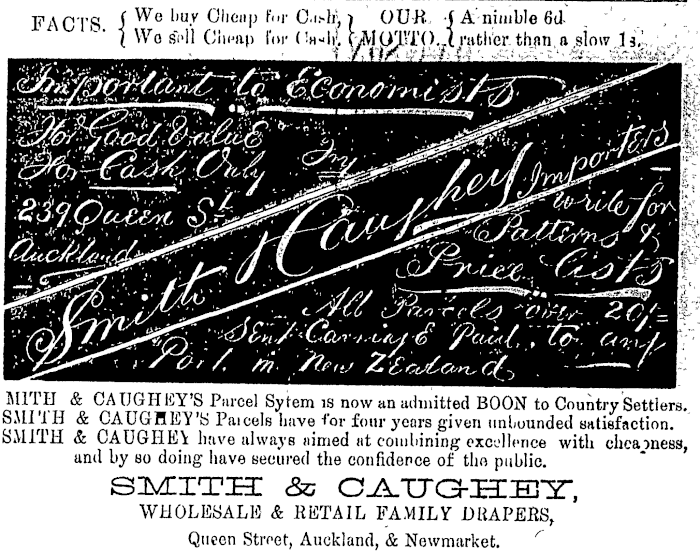 FACTS. { We buy Cheap for Cash, } OUR { A nimble 6d
We sell Cheap for Cash, { MOTTO. { rather than a slow 1s.
Important to Economists
For Good Value
For Cash Only Try
239 Queen St
Auckland
Smith & Caughey Importers
write for
Patterns &
Price Lists
All Parcels over 20/=
Sent Carriage Paid to any
Port in New Zealand
MITH & CAUGHEY'S Parcel Sytem is now an admitted BOON to Country Settlers.
SMITH & CAUGHEY'S Parcels have for four years given unbounded satisfaction.
SMITH & CAUGHEY have always aimed at combining excellence with cheapness,
and by so doing have secured the confidence of the public.
SMITH & CAUGHEY,
WHOLESALE & RETAIL FAMILY DRAPERS,
Queen Street, Auckland, & Newmarket.